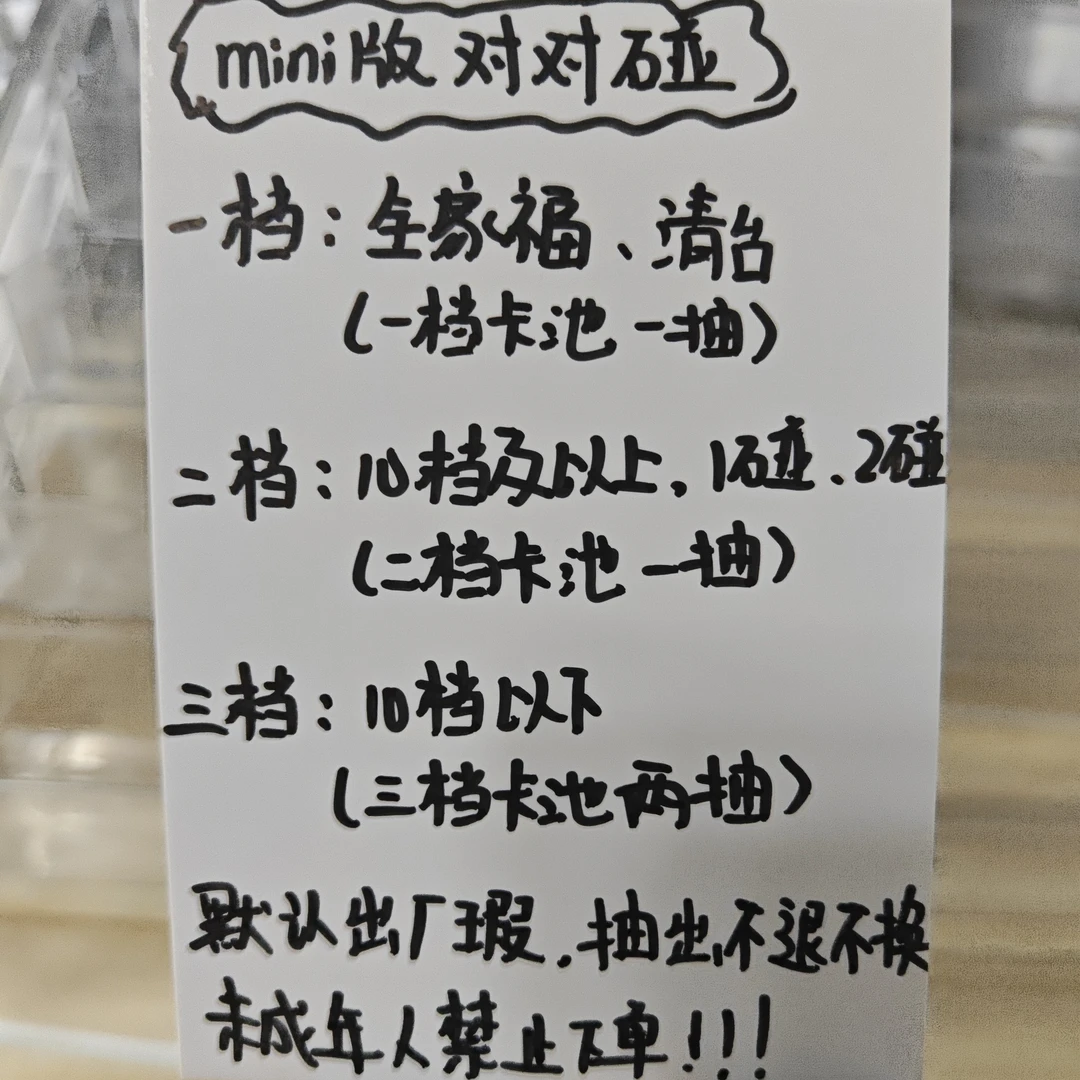 mini版 对对碰
一档：全家福、清台
（一档卡池一抽）
二档：10档及以上，1碰、2碰
（二档卡池一抽）
三档：10档以下
（三档卡池两抽）
默认出厂瑕，抽出不退不换
未成年人禁止下单！！！